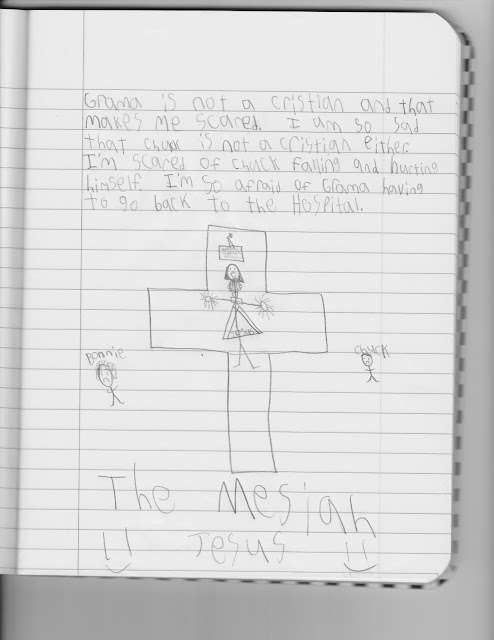 Grama is not a cristian and that
makes me scared. I am so sad
that chuck is not a cristian either.
I'm scared of chuck falling and hurting
himself. I'm so afraid of Grama having
to go back to the Hospital.
Bonnie
chuck
The Mesiah
Jesus